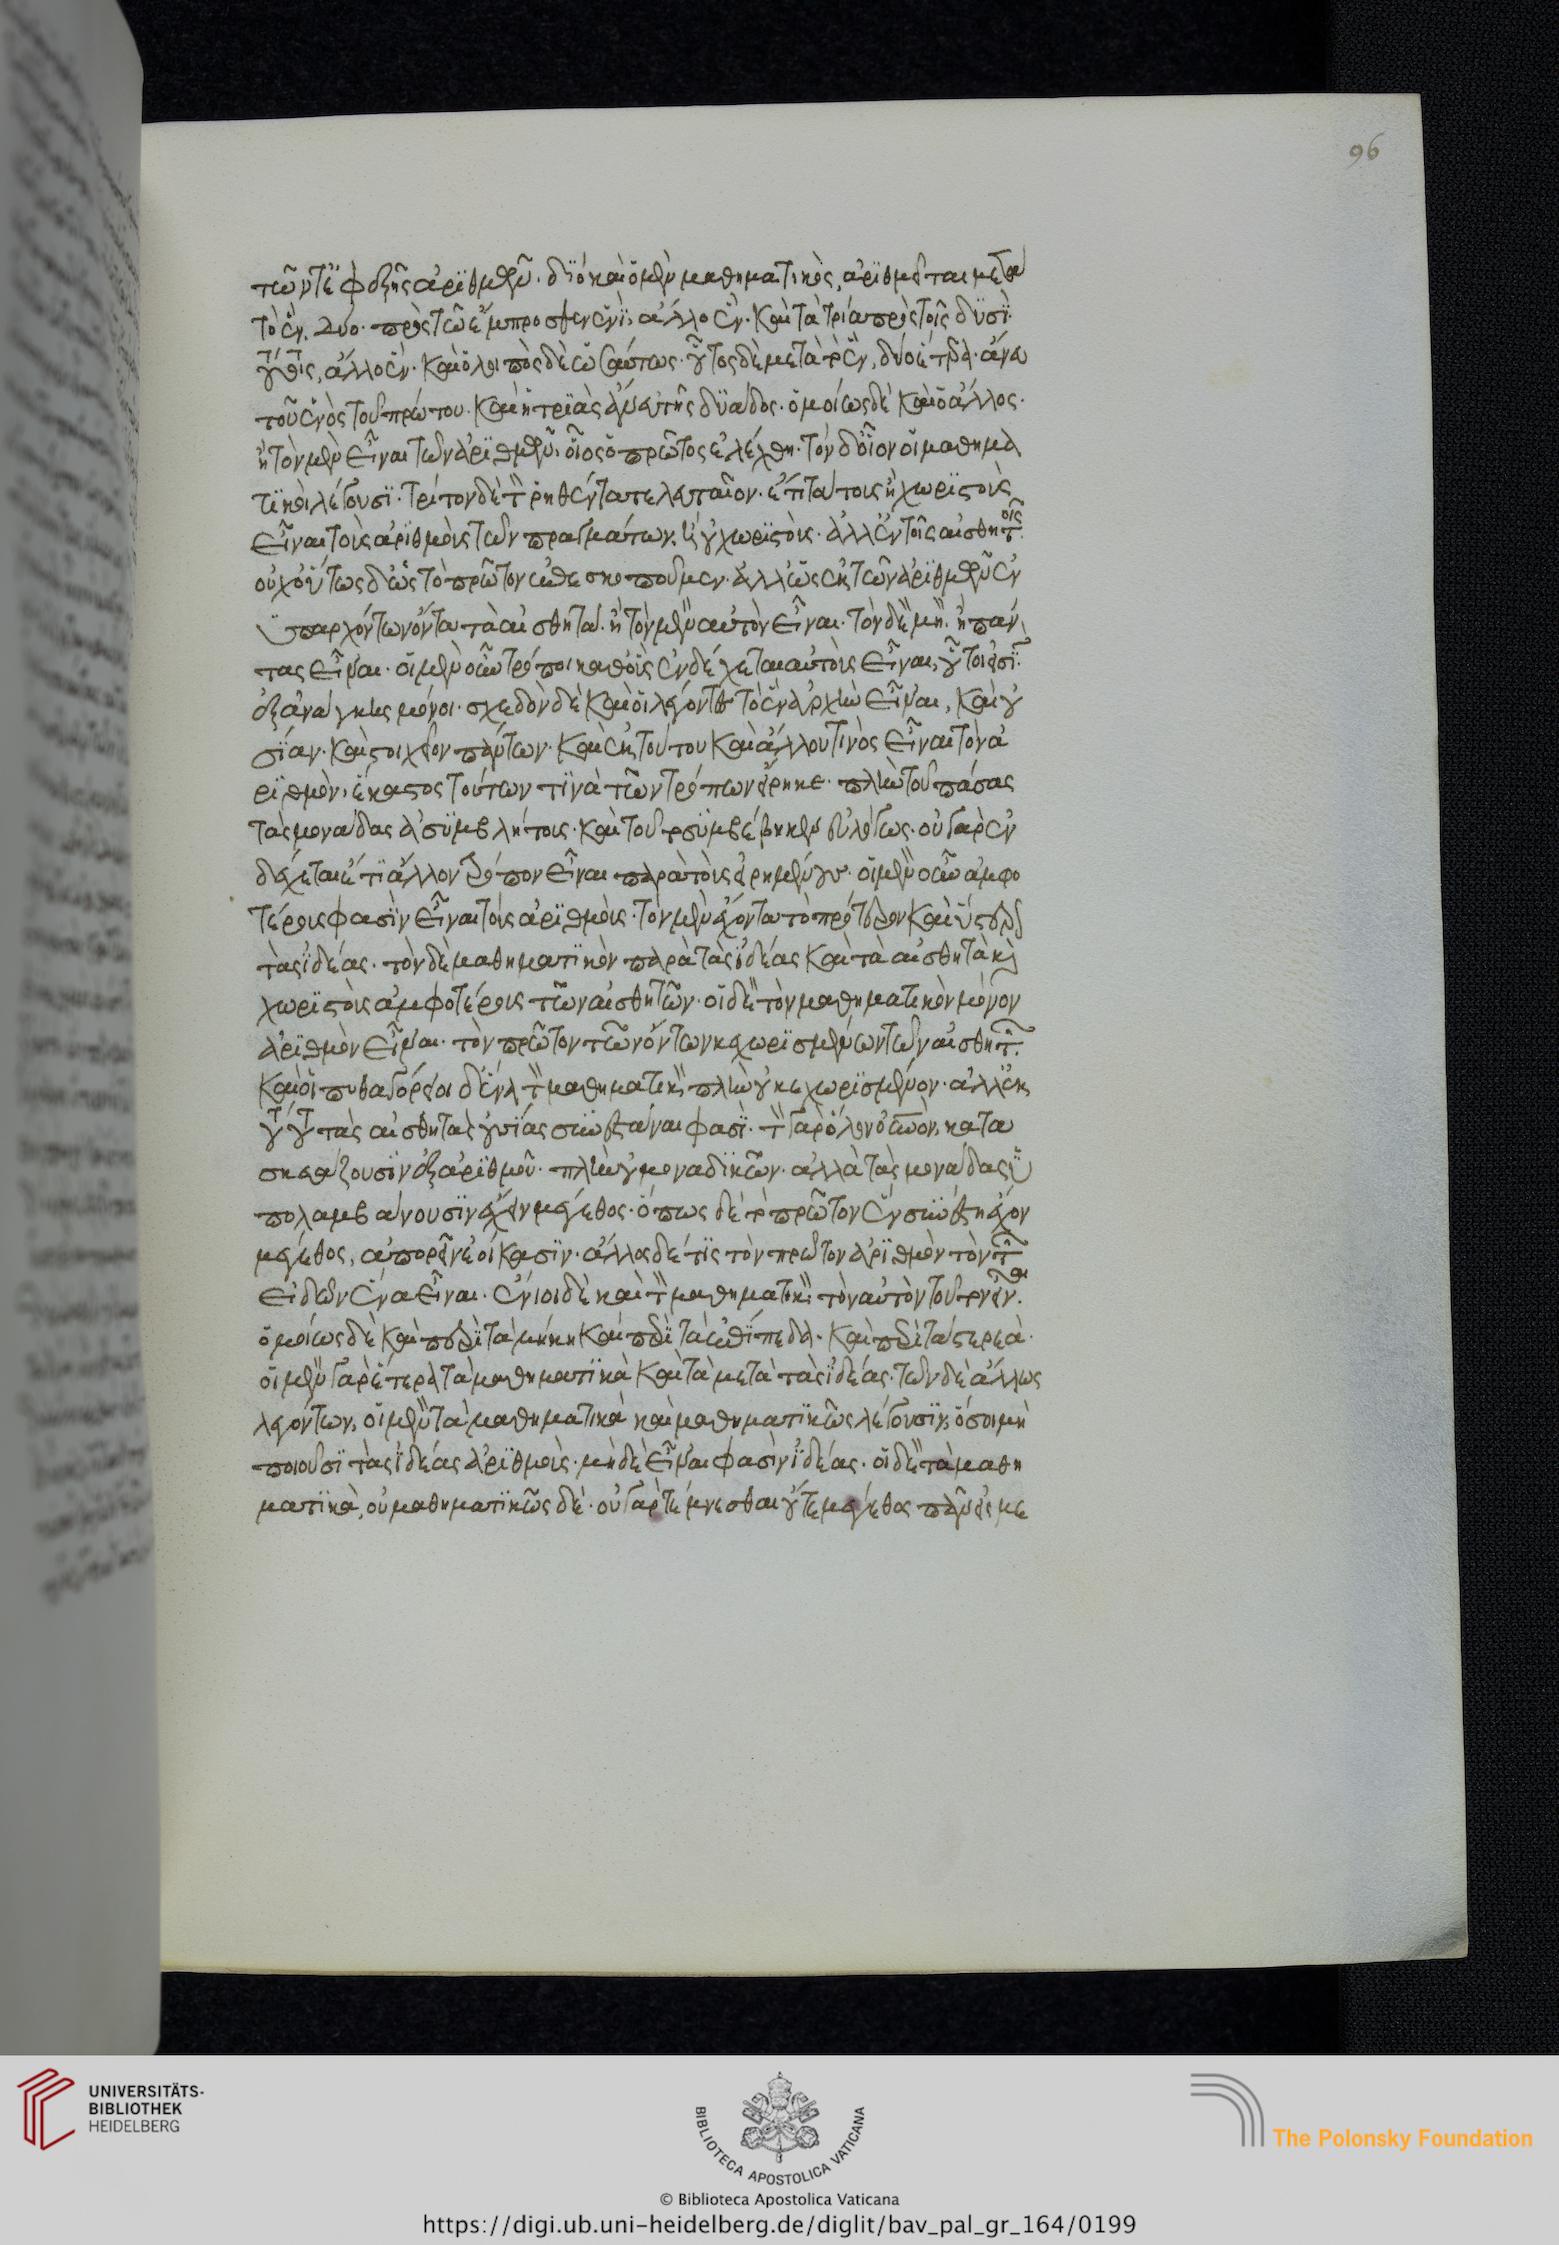 96
τῶν τε ἐφεξῆς ἀριθμῶν. διὸ καὶ ὁ μὲν μαθηματικὸς, ἀριθμεῖται μετὰ
τὸ ἕν. δύο. πρὸς τῶ ἔμπροσθεν ἑνὶ, ἄλλο ἕν. καὶ τὰ τρία πρὸς τοῖς δυσὶ
τούτοις, ἄλλο ἕν. καὶ ὁ λοιπὸς δὲ ὡσαύτως. οὗτος δὲ μετὰ τὸ ἕν, δύο ἕτερα. ἄνευ
τοῦ ἑνὸς τοῦ πρώτου. καὶ ἡ τριὰς ἄνευ τῆς δυάδος. ὁμοίως δὲ καὶ ὁ ἄλλος.
ἢ τὸν μὲν εἶναι τῶν ἀριθμῶν. οἷος ὁ πρῶτος ἐλέχθη. τὸν δ' οἷον οἱ μαθημα
τικοὶ λέγουσι. τρίτον δὲ τὸν ῥηθέντα τελευταῖον. ἔτι τούτους ἢ χωριστοὺς
εἶναι τοὺς ἀριθμοὺς τῶν πραγμάτων. ἢ οὐ χωριστοὺς. ἀλλ' ἐν τοῖς αἰσθητοῖς.
οὐχ οὕτως δ' ὡς τὸ πρῶτον ἐπεσκοποῦμεν. ἀλλ' ὡς ἐκ τῶν ἀριθμῶν ἐν
ὑπαρχόντων ὄντα τὰ αἰσθητά. ἢ τὸν μὲν αὐτὸν εἶναι. τὸν δὲ μή. ἢ πάν
τας εἶναι. οἱ μὲν οὖν τρόποι καθ' οὓς ἐνδέχεται αὐτοὺς εἶναι, οὗτοι εἰσὶν
ἐξ ἀνάγκης μόνοι. σχεδὸν δὲ καὶ οἱ λέγοντες τὸ ἓν ἀρχὴν εἶναι, καὶ οὐ
σίαν. καὶ στοιχεῖον πάντων. καὶ ἐκ τούτου καὶ ἄλλου τινὸς εἶναι τὸν ἀ
ριθμὸν, ἕκαστος τούτων τινὰ τῶν τρόπων εἴρηκε. πλὴν τοῦ πάσας
τὰς μονάδας ἀσυμβλήτους. καὶ τοῦτο συμβέβηκεν εὐλόγως. οὐ γὰρ ἐν
δέχεται ἔτι ἄλλον τρόπον εἶναι παρὰ τοὺς εἰρημένους. οἱ μὲν οὖν ἀμφο
τέρους φασὶν εἶναι τοὺς ἀριθμοὺς. τὸν μὲν ἔχοντα τὸ πρότερον καὶ ὕστερον
τὰς ἰδέας. τὸν δὲ μαθηματικὸν παρὰ τὰς ἰδέας καὶ τὰ αἰσθητὰ καὶ
χωριστοὺς ἀμφοτέρους τῶν αἰσθητῶν. οἱ δὲ τὸν μαθηματικὸν μόνον
ἀριθμὸν εἶναι. τὸν πρῶτον τῶν ὄντων κεχωρισμένων τῶν αἰσθητῶν.
καὶ οἱ πυθαγόρειοι δ' ἕνα τὸν μαθηματικὸν πλὴν οὐ κεχωρισμένον. ἀλλ' ἐκ
τούτου τὰς αἰσθητὰς οὐσίας συνεστάναι φασὶ. τὸν γὰρ ὅλον οὐρανὸν, κατα
σκευάζουσιν ἐξ ἀριθμῶν. πλὴν οὐ μοναδικῶν. ἀλλὰ τὰς μονάδας ὑ
πολαμβάνουσιν ἔχειν μέγεθος. ὅπως δὲ τὸ πρῶτον ἓν συνέστη ἔχον
μέγεθος, ἀπορεῖν ἐοίκασιν. ἄλλος δέ τις τὸν πρῶτον ἀριθμὸν τὸν τῶν
εἰδῶν ἕνα εἶναι. ἔνιοι δὲ καὶ τὸν μαθηματικὸν τὸν αὐτὸν τοῦτον εἶναι.
ὁμοίως δὲ καὶ περὶ τὰ μήκη καὶ περὶ τὰ ἐπίπεδα. καὶ περὶ τὰ στερεὰ.
οἱ μὲν γὰρ ἕτερα τὰ μαθηματικὰ καὶ τὰ μετὰ τὰς ἰδέας. τῶν δὲ ἄλλως
λεγόντων, οἱ μὲν τὰ μαθηματικὰ καὶ μαθηματικῶς λέγουσιν, ὅσοι μὴ
ποιοῦσι τὰς ἰδέας ἀριθμοὺς. μὴ δὲ εἶναι φασὶν ἰδέας. οἱ δὲ τὰ μαθη
ματικὰ, οὐ μαθηματικῶς δέ. οὐ γὰρ τέμνεσθαι οὔτε μέγεθος πᾶν εἰς με
UNIVERSITÄTS-
BIBLIOTHEK
HEIDELBERG
BIBLIOTECA APOSTOLICA VATICANA
The Polonsky Foundation
© Biblioteca Apostolica Vaticana
https://digi.ub.uni-heidelberg.de/diglit/bav_pal_gr_164/0199